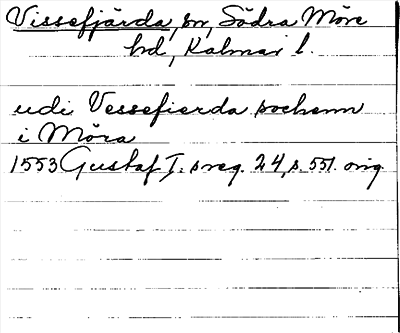 Vissefjärda, sn, Södra Möre
hd, Kalmar l.
udi Vessefierda sochenn
i Möra
1553 Gustaf I:s reg. 24, s. 551. orig